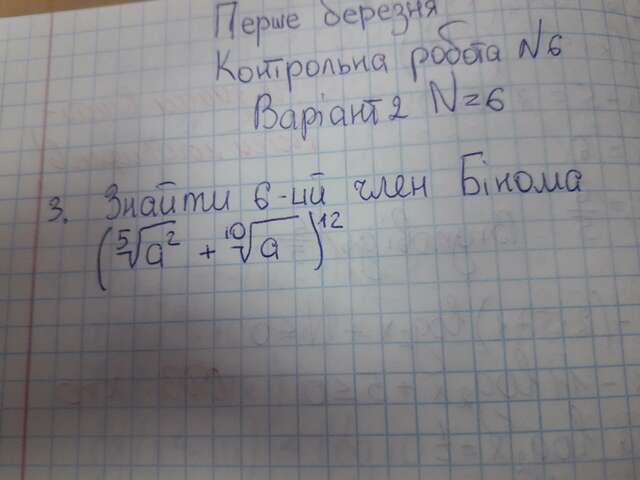 Перше березня
Контрольна робота N6
Варіант 2 N=6
3. Знайти 6-ий член Бінома
(⁵√a² + ¹⁰√a)¹²